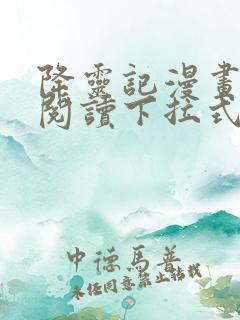 降靈記漫畫
閱讀下拉式
中德馬普
未经同意禁止转载